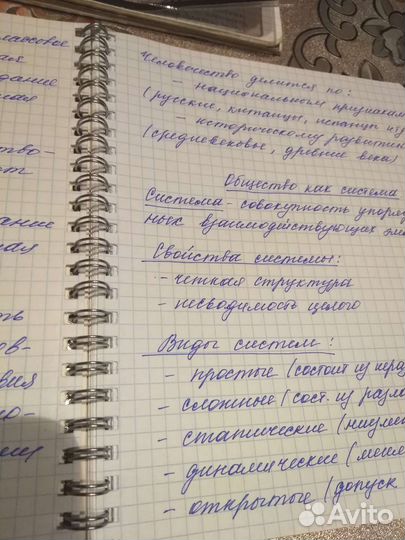 массовое
ая
дание
ная
ство-
ст
ание
ная
ть
ов-
вия
но-
ем
Человечество делится по:
– национальным признакам
(русские, китайцы, испанцы
– историческому развитию
(средневековье, древние века)
Общество как система
Система – совокупность упоряд
ных взаимодействующих эле
Свойства системы:
– четкая структура
– несводимость целого
Виды систем:
– простые (состоит из
– сложные (сост. из разл
– статические (
– динамические (меня
– открытые (допуск
Avito